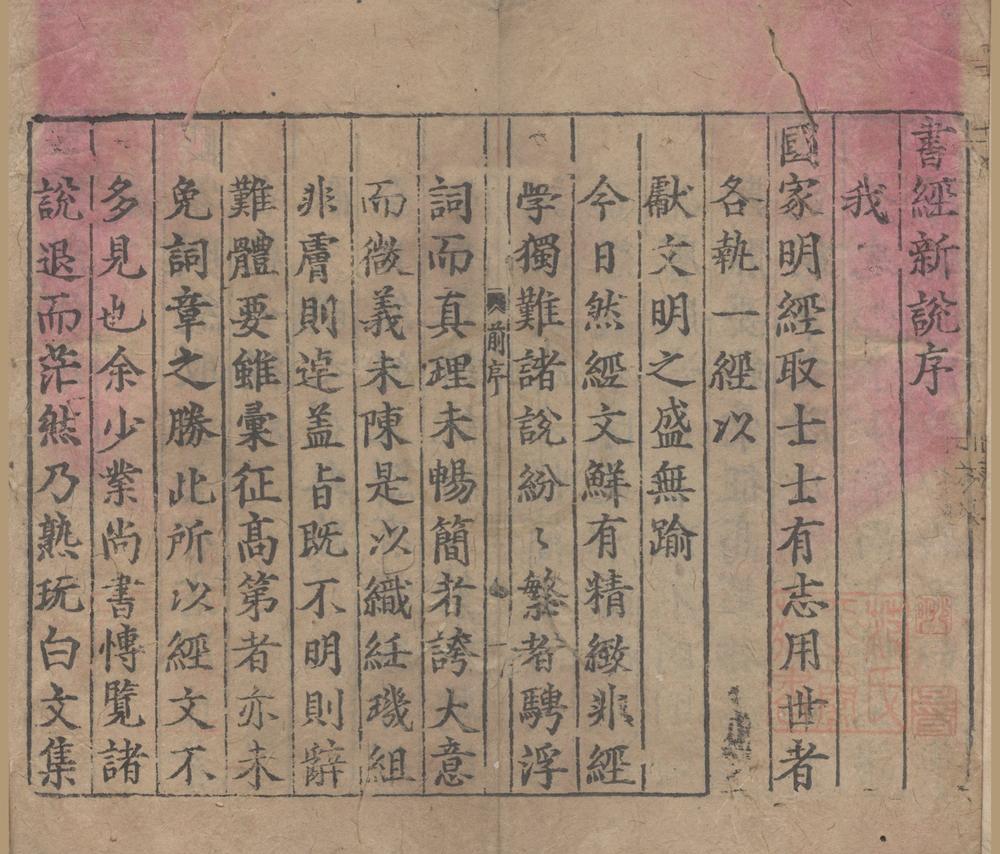 書經新說序
我
國家明經取士士有志用世者
各執一經以
獻文明之盛無踰
今日然經文鮮有精緻非經
学獨難諸說紛〻繁者騁浮
前序
一
詞而真理未暢簡者誇大意
而微義未陳是以織紝璣組
非膚則逆盖旨既不明則辭
難體要雖彙征髙第者亦未
免詞章之勝此所以經文不
多見也余少業尚書慱覽諸
說退而茫然乃熟玩白文集